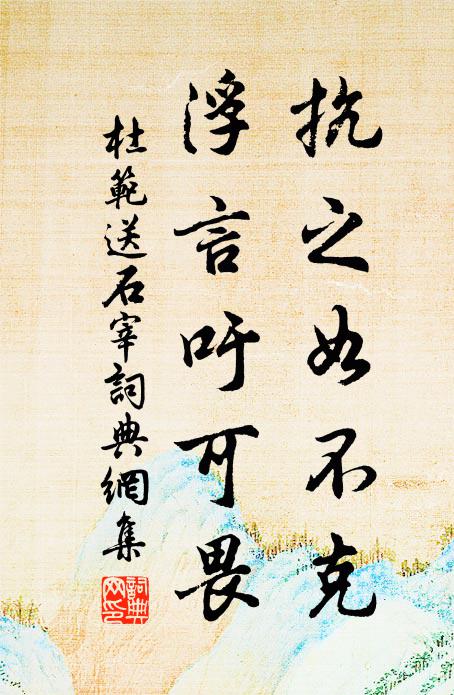 抗之如不克
浮言吁可畏
杜範送石宰詞典網集
詞典網印